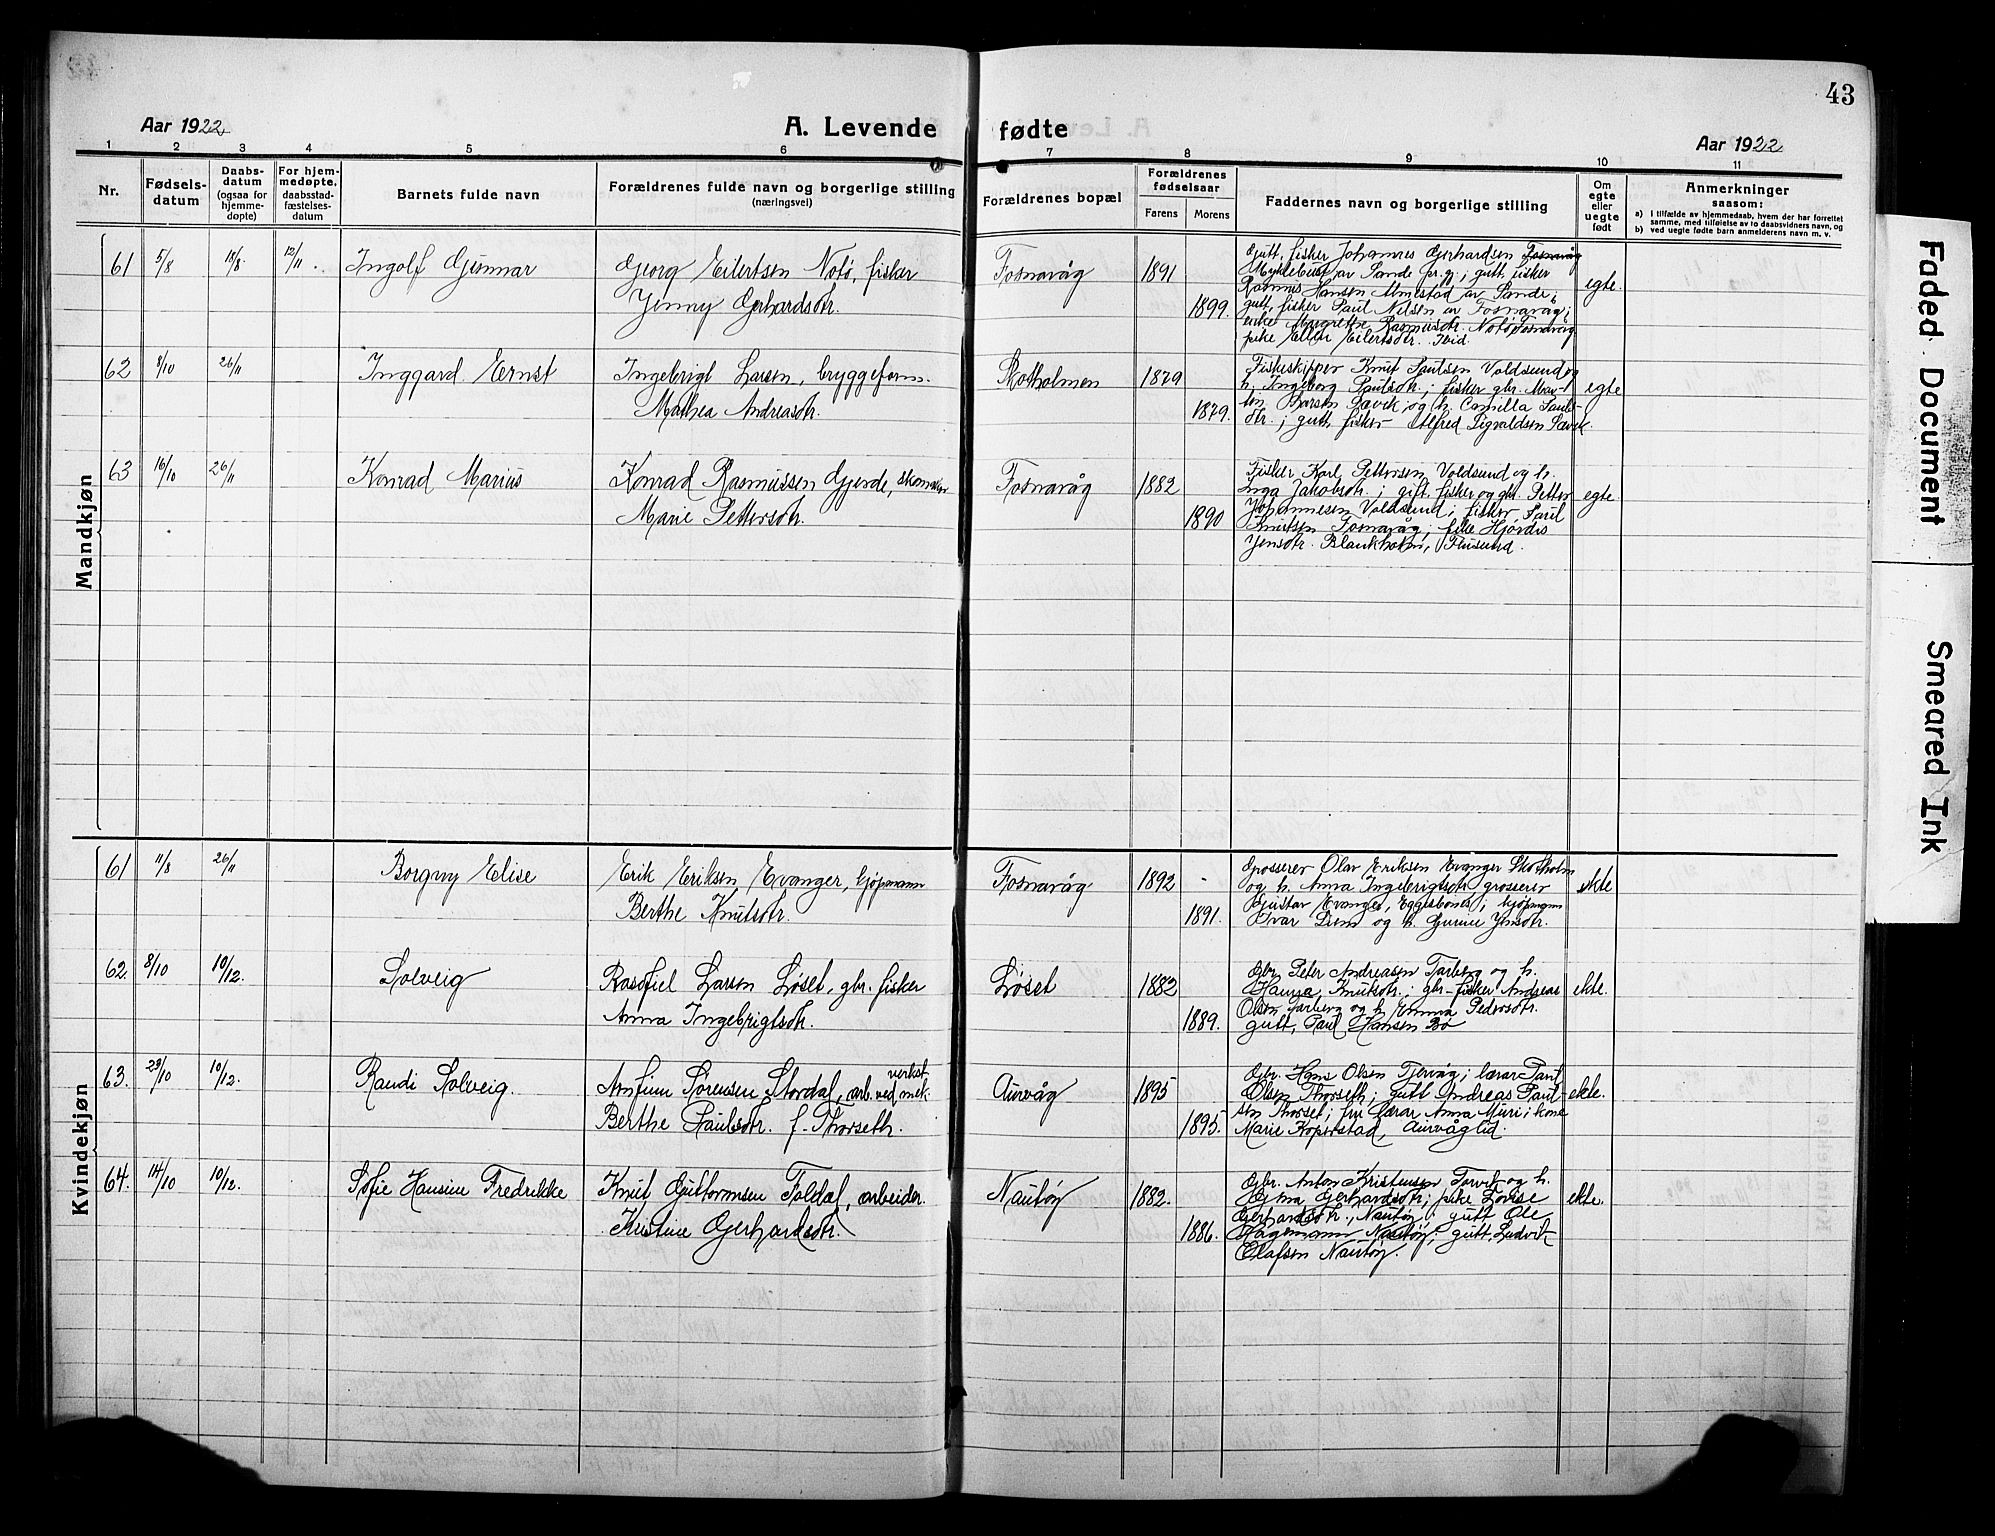 43
Aar 1922
A. Levende fødte
Aar 1922
1 2 3 4 5 6 7 8 9 10 11
Nr.
Fødsels-
datum
Daabs-
datum
(ogsaa for
hjemme-
døpte)
For hjem-
medøpte,
daabsstad-
fæstelses-
datum
Barnets fulde navn
Forældrenes fulde navn og borgerlige stilling
(næringsvei)
Forældrenes bopæl
Forældrenes
fødselsaar
Farens Morens
Faddernes navn og borgerlige stilling
Om
egte
eller
uegte
født
Anmerkninger
saasom:
a) I tilfælde av hjemmedaab, hvem der har forrettet
samme, med tilføielse av to daabsvidners navn, og
b) ved uegte fødte barn anmelderens navn m. v.
Mandkjøn
61 5/8 18/8 12/11 Ingolf Gunnar
Georg Eilertsen Notø, fisker
Jenny Gerhardsdtr.
Fosnavåg 1891
1899.
Gutt, fisker Johannes Gerhardsen Fosnavåg
Myklebust av Sande pr.gj.; gutt, fisker
Rasmus Hansen Almestad av Sande;
gutt, fisker Paul Nilsen av Fosnavåg;
enke Margrethe Rasmusdtr. Notø, Fosnavåg
pike Ellen Eilertsdtr. Ibid.
egte
62 8/10 26/11 Inggard Ernst
Ingebrigt Larsen, bryggeform.
Mathea Andreasdtr.
Skotholmen 1879
1879.
Fiskeskipper Knut Paulsen Voldsund og
h. Ingeborg Paulsdtr.; fisker gbr. Mar-
tin Larsen Sævik og h. Camilla Pauls-
dtr.; gutt, fisker Alfred Sigvaldsen Sævik.
egte
63 16/10 26/11 Konrad Marius
Konrad Rasmussen Gjerde, skomaker
Marie Pettersdtr.
Fosnavåg 1882
1890
Fisker Karl Pettersen Voldsund og h.
Inga Jakobsdtr.; gift, fisker og gbr. Petter
Johannesen Voldsund; fisker Paul
Knutsen Fosnavåg; pike Hjørdis
Jensdtr. Blankholm,
egte
Kvindekjøn
61 11/8 26/11 Borgny Elise
Erik Eriksen Evanger, kjøpmann
Berthe Knutsdtr.
Fosnavåg 1892 -
1891.
Grosserer Olav Eriksen Evanger Skotholm
og h. Anna Ingebrigtsdtr. grosserer
Gustav Evanger, Eggesbønes; kjøpmann
Ivar og h. Gurine Jensdtr.
ekte
62. 8/10 10/12. Solveig
Rasofiel Larsen Løset, gbr. fisker
Anna Ingebrigtsdtr.
Løset 1882
1889.
Gbr. Peter Andreasen Tarberg og h.
Hansa Knutsdtr.; gbr-fisker Andreas
Olsen Tarberg og h. Emma Pedersdtr.
gutt, Paul Hansen Bø
ekte.
63. 23/10 10/12. Randi Solveig.
Arnfinn Sørensen Stordal, arb. ved mek. verkst
Berthe Paulsdtr. f. Thorseth.
Aurvåg 1895
1895.
Gbr. Hans Olsen Tjervåg; lærar Paul
Olsen Thorseth; gutt Andreas Paul-
sen Thorset; fru lærar Anna Muri; kone
Marie Koperstad, Aurvåglid.
ekte.
64. 14/10 10/12. Sofie Hansine Fredrikke
Knut Guttormsen Foldal, arbeider.
Kristine Gerhardsdtr.
Nautøy 1882.
1886.
Gbr. Anton Kristensen Tarvik og h.
Gerhardsdtr.; pike Lovise
Gerhardsdtr., Nautøy; gutt Ole
Hagemann Nautøy; gutt, Ludvik
Olafsen Nautøy.
ekte.
Faded Document
Smeared Ink